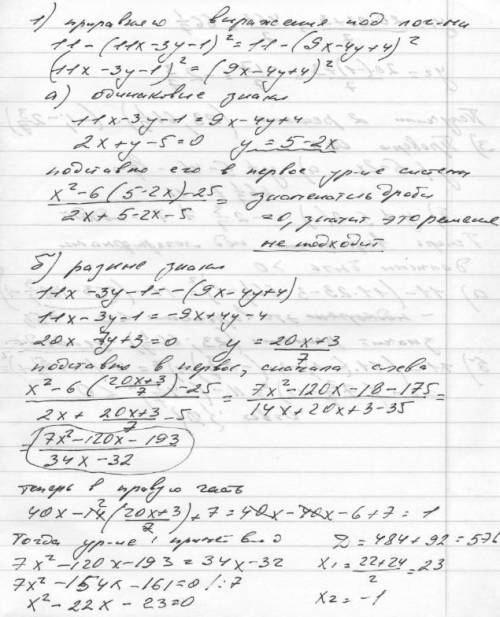 1) приравняю выражения под лог-ми
11-(11x-3y-1)²=11-(9x-4y+4)²
(11x-3y-1)²=(9x-4y+4)²
а) одинаковые знаки
11x-3y-1=9x-4y+4
2x+y-5=0 y=5-2x
подставлю его в первое ур-ие системы
x²-6(5-2x)-25/2x+5-2x-5= знаменатель дроби
=0, значит это решение
не подходит
б) разные знаки
11x-3y-1=-(9x-4y+4)
11x-3y-1=-9x+4y-4
20x-7y+3=0 y=20x+3/7
подставлю в первое, сначала слева
x²-6(20x+3/7)-25/2x+20x+3/7-5=7x²-120x-18-175/14x+20x+3-35=
=7x²-120x-193/34x-32
теперь в правую часть
40x-14(20x+3/7)+7=40x-40x-6+7=1
Тогда ур-ие
7x²-120x-193=34x-32
7x²-154x-161=0/:7
x²-22x-23=0
D=484+92=576
x₁=22+24/2=23
x₂=-1